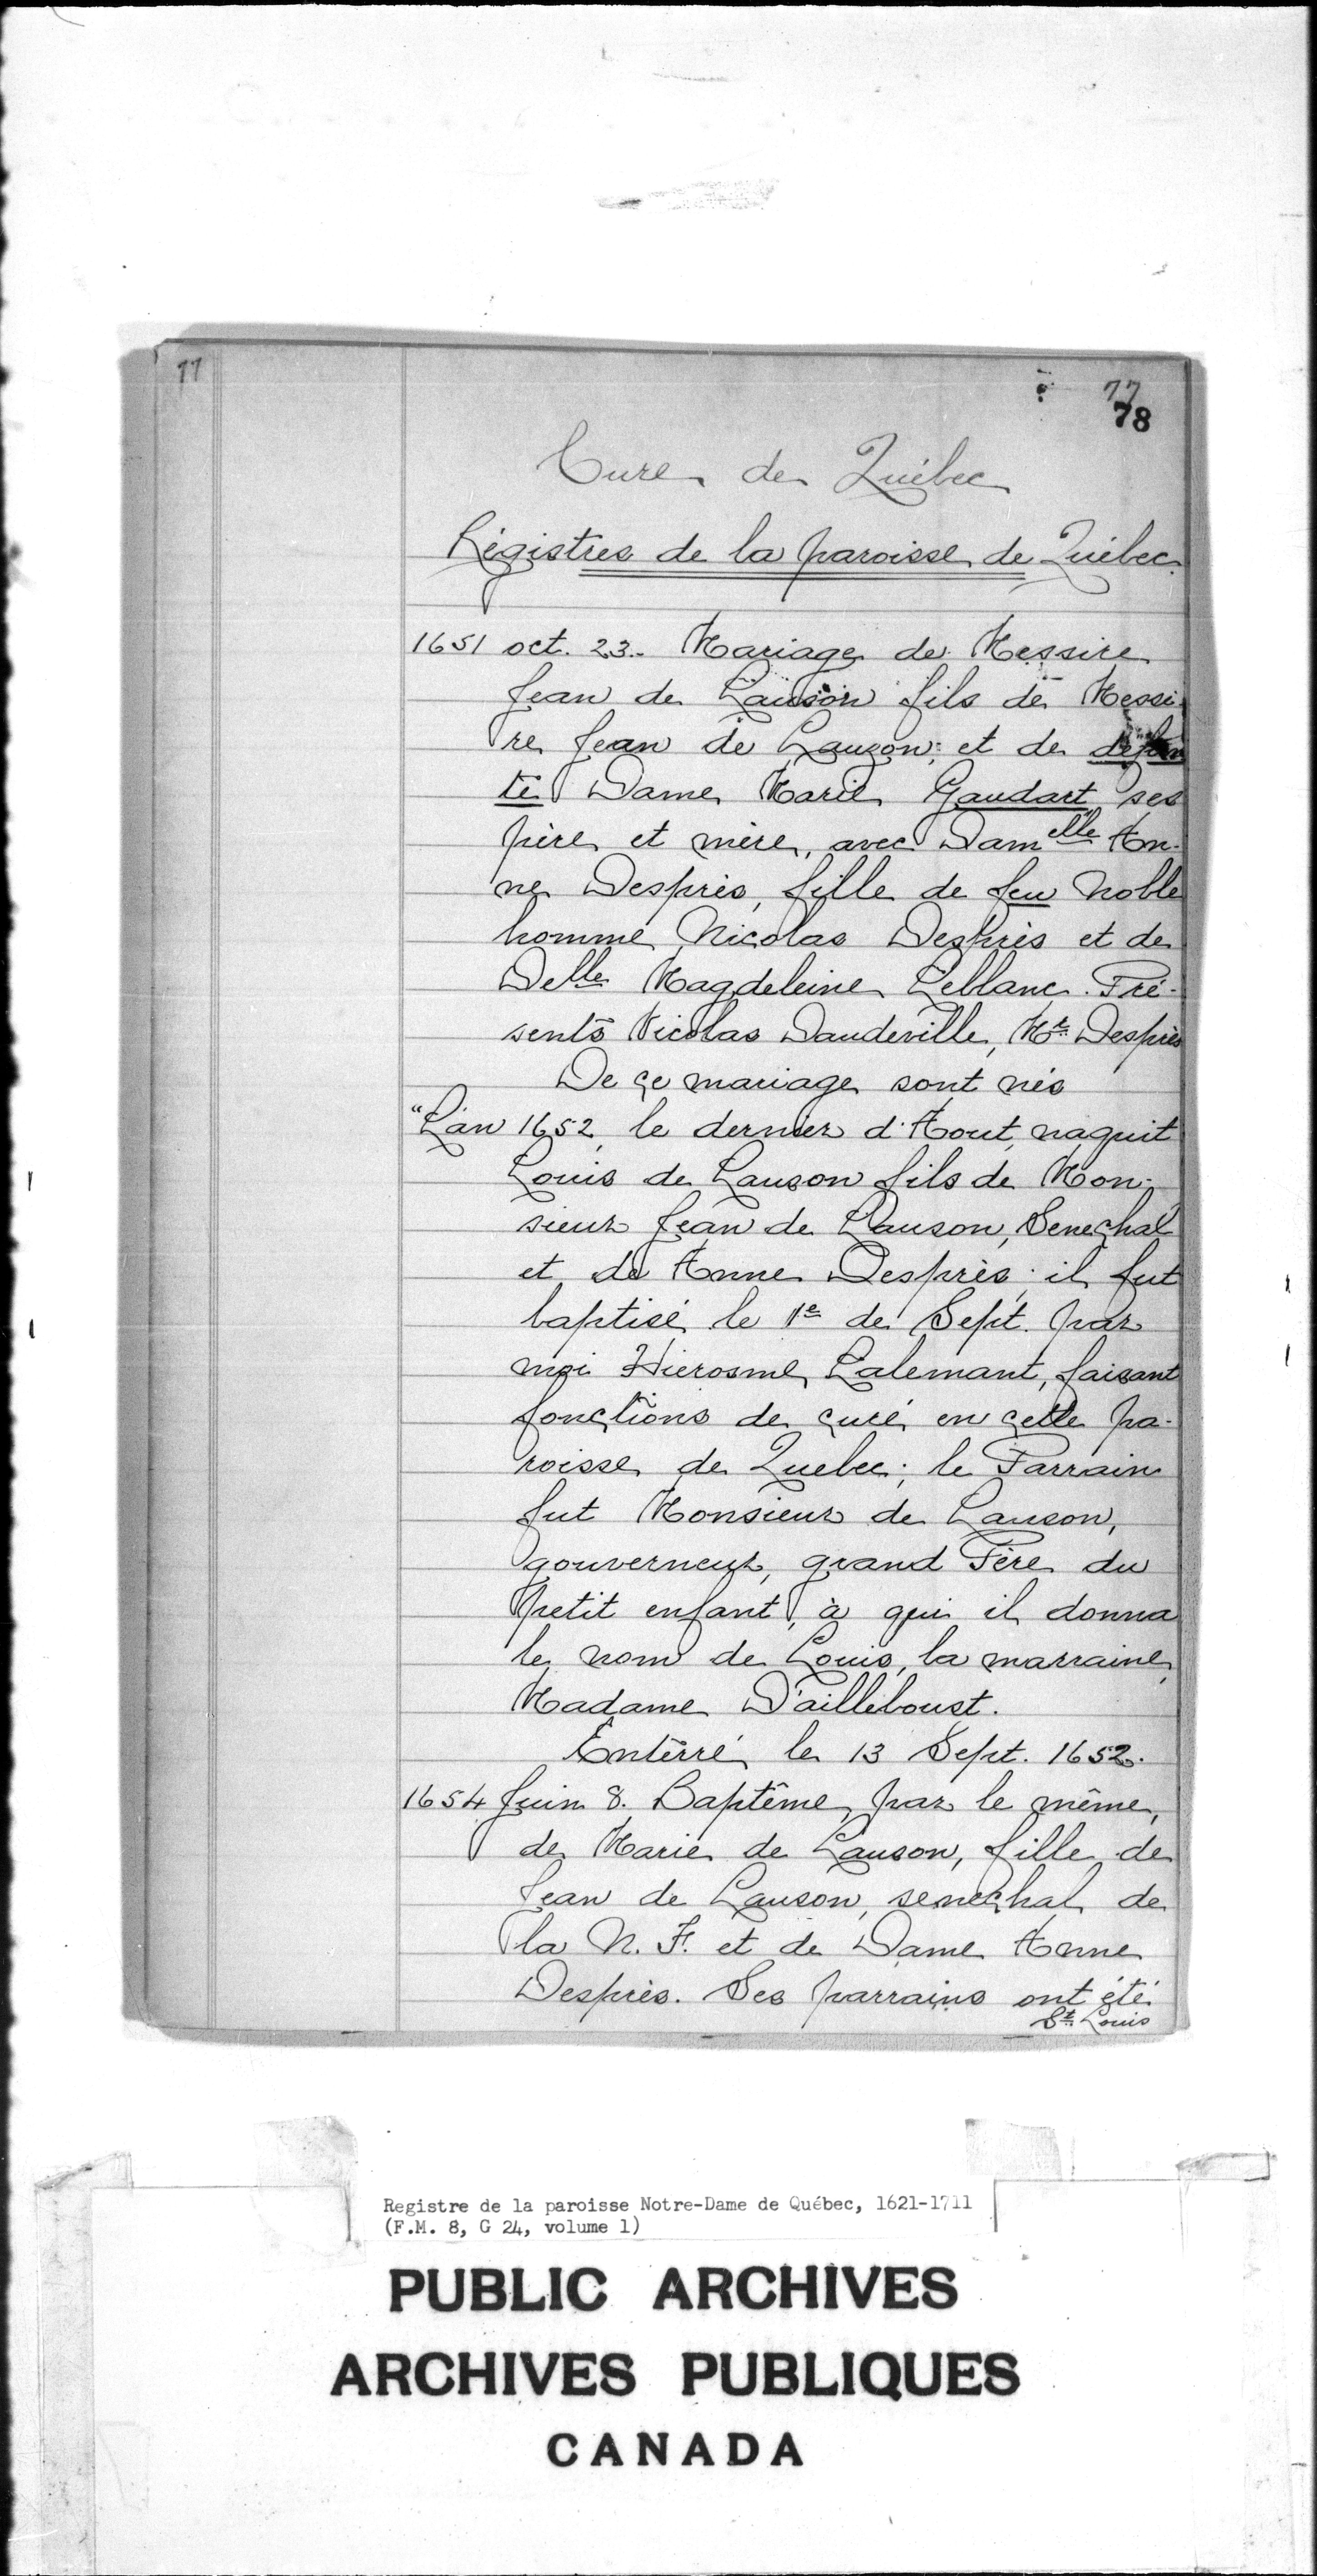 77
77
78
Cure de Québec
Régistres de la paroisse de Québec.
1651 oct. 23. Mariage de Messire
Jean de Lauson fils de Messi
re Jean de Lauzon; et de défun
te Dame Marie Gaudart ses
père et mère, avec Damelle An-
ne Desprès, fille de feu Noble
homme Nicolas Desprès et de
Delle Magdeleine Leblanc. Pré-
sents Nicolas Daudeville, Mr Desprès
De ce mariage sont nés
"L'an 1652, le dernier d'Aout, naquit
Louis de Lauson fils de Mon-
sieur Jean de Lauson, Senechal
et de Anne Desprès; il fut
baptisé le 1e de Sept. par
moi Hierosme Lalemant, faisant
fonctions de curé en cette pa-
roisse de Quebec; le Parrain
fut Monsieur de Lauson,
gouverneur, grand Père du
petit enfant, à qui il donna
le nom de Louis, la marraine,
Madame D'ailleboust.
Enterré le 13 Sept. 1652.
1654 Juin 8. Baptême, par le même,
de Marie de Lauson, fille de
Jean de Lauson, senechal de
la N. F. et de Dame Anne
Desprès. Ses parrains ont été
St. Louis
Registre de la paroisse Notre-Dame de Québec, 1621-1711
(F.M. 8, G 24, volume 1)
PUBLIC ARCHIVES
ARCHIVES PUBLIQUES
CANADA